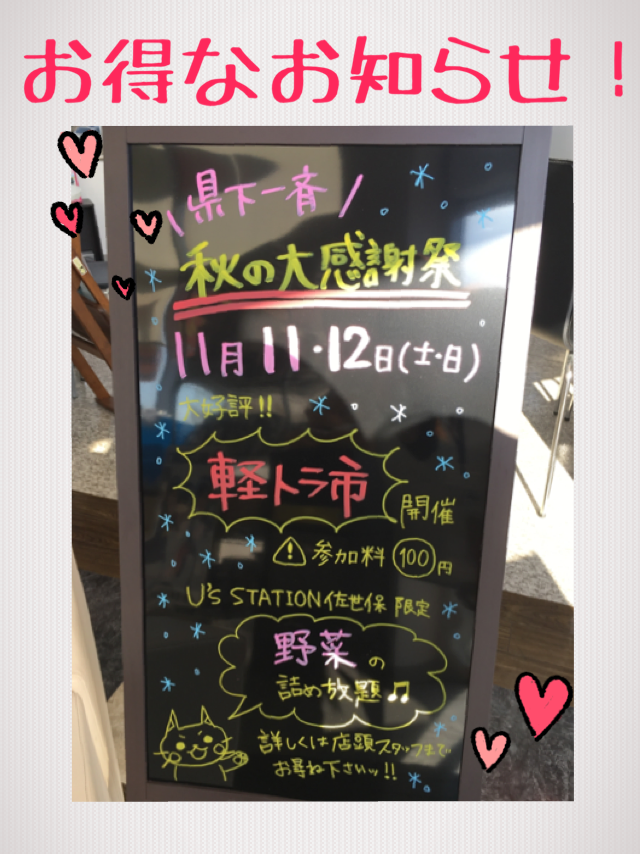 お得なお知らせ！
\県下一斉/
秋の大感謝祭
11月11・12日(土・日)
大好評!!
軽トラ市
開催
⚠参加料100円
U'S STATION佐世保 限定
野菜の
詰め放題♫
詳しくは店頭スタッフまで
お尋ね下さいッ!!